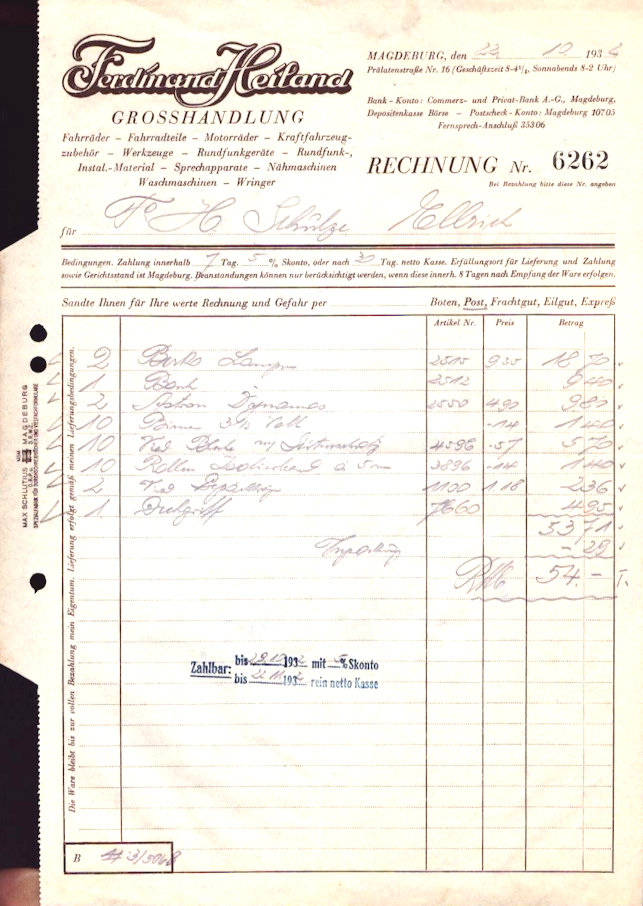 Ferdinand Heiland
GROSSHANDLUNG
Fahrräder – Fahrradteile – Motorräder – Kraftfahrzeug-
zubehör – Werkzeuge – Rundfunkgeräte – Rundfunk-,
Instal.-Material – Sprechapparate – Nähmaschinen
Waschmaschinen – Wringer
MAGDEBURG, den 22. 10 1932
Prälatenstraße Nr. 16 (Geschäftszeit 8-4½, Sonnabends 8-2 Uhr)
Bank-Konto: Commerz- und Privat-Bank A.-G., Magdeburg,
Depositenkasse Börse – Postscheck-Konto: Magdeburg 10705
Fernsprech-Anschluß 35306
RECHNUNG Nr. 6262
Bei Bezahlung bitte diese Nr. angeben
für Fa H Schulze Ellrich
Bedingungen. Zahlung innerhalb 7 Tag. 5 % Skonto, oder nach 30 Tag. netto Kasse. Erfüllungsort für Lieferung und Zahlung
sowie Gerichtsstand ist Magdeburg. Beanstandungen können nur berücksichtigt werden, wenn diese innerh. 8 Tagen nach Empfang der Ware erfolgen.
Sandte Ihnen für Ihre werte Rechnung und Gefahr per Boten, Post, Frachtgut, Eilgut, Expreß
Artikel Nr. Preis Betrag
2 Berko Lampen 2515 935 18 70
1 2512 9 40
2 Dynamos 2550 490 9 80
10 Birnen 3½ Volt -14 1 40
10 4596 -57 5 70
10 Rollen Isolierband á 5 m 3896 -14 1 40
2 1100 1.18 2 36
1 Drehgriff 7660 4 95
53 71
- 29
RM 54.-
Zahlbar: bis 29.10. 1932 mit 5 % Skonto
bis 22.11. 1932 rein netto Kasse
Die Ware bleibt bis zur vollen Bezahlung mein Eigentum. Lieferung erfolgt gemäß meinen Lieferungsbedingungen.
MAX SCHLUTIUS MAGDEBURG
B